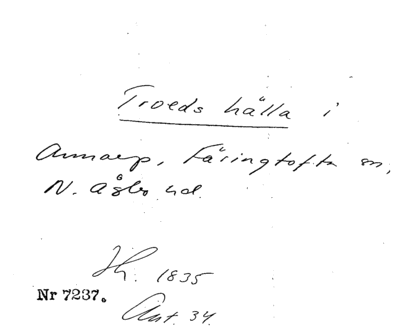 Troeds hälla i
Annarp, Färingtofta sn,
N. Åsbo hd.
Jh. 1835
Nr 7237.
Ant. 34.